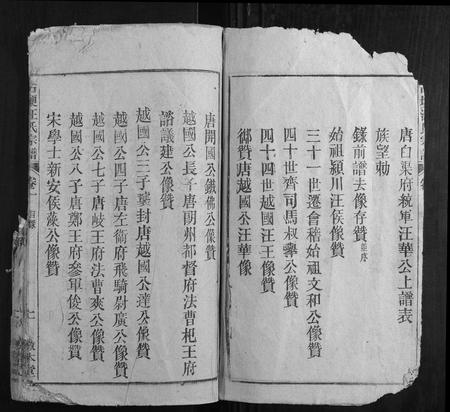 唐白渠府統軍汪華公上譜表
族望勅
錄前譜去像存贊並序
始祖潁川汪侯像贊
三十一世遷會稽始祖文和公像贊
四十世齊司馬叔舉公像贊
四十四世越國汪王像贊
御贊唐越國公汪華像
唐開國公鐵佛公像贊
越國公長子唐朗州都督府法曹杞王府
諮議建公像贊
越國公三子襲封唐越國公達公像贊
越國公四子唐左衞府飛騎尉廣公像贊
越國公七子唐岐王府法曹爽公像贊
越國公八子唐鄭王府參軍俊公像贊
宋學士新安侯藻公像贊
汪氏宗譜 卷一 目錄
敦本堂